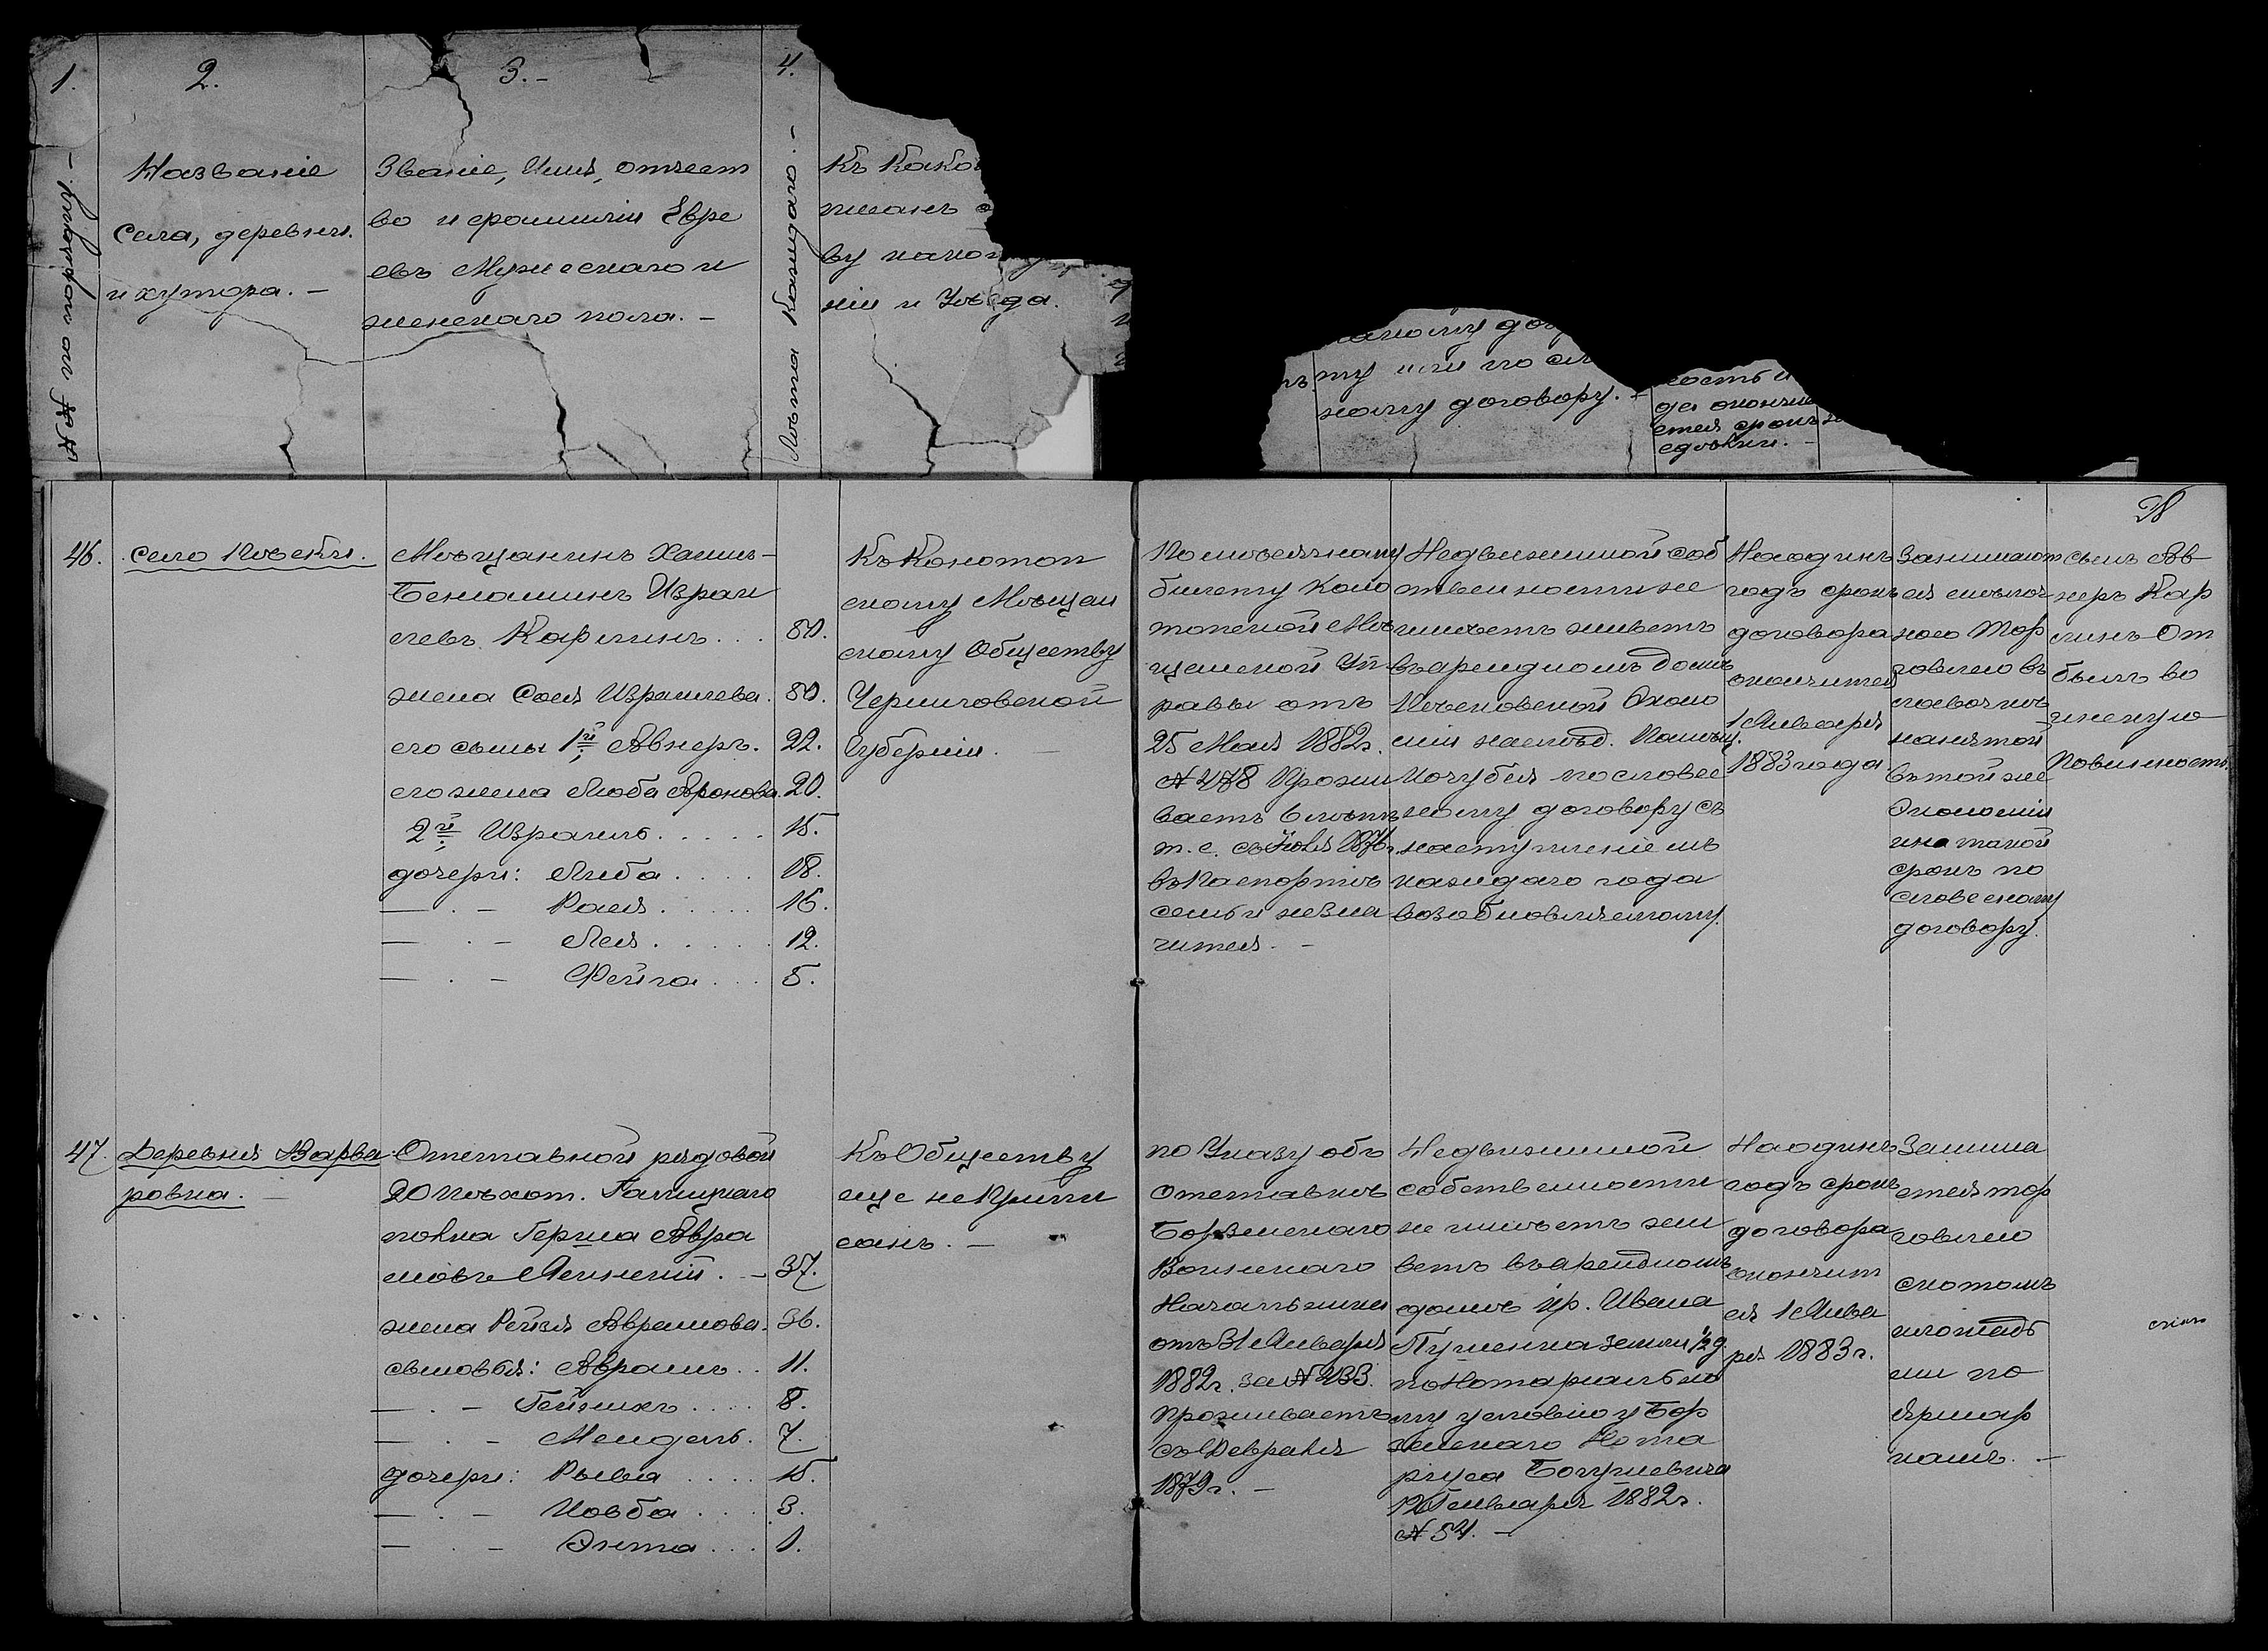 1.
2.
3.-
4.
№№ по порядку.-
Названіе
Села, деревни.
и хутора.-
Званіе, Имя, отчест
во и фамиліи Евре
евъ Мужескаго и
женскаго пола.-
Лѣта каждаго.-
Къ како
ву
ніи и Уѣзда.
ному
ту или по сл
ному договору.-
ность и
да окончи
ется срокъ
сдѣлки.-
28
46.
село Пѣски.
Мѣщанинъ Хаимъ-
Беніаминъ Израи
левъ Карлинъ... 80.
жена Сося Израилева. 80.
его сыны 1й, Авнеръ. 22.
его жена Люба Аронова. 20.
2й Израиль..... 15.
дочери: Либа.... 18.
— . – Рася..... 16.
— . – Лея...... 12.
— . – Фейга... 5.
Къ Конотоп
скому Мѣщан
скому Обществу
Черниговской
Губерніи. —
По мѣсячному
билету Коно
топской Мѣ
щанской Уп
равы отъ
25 Мая 1882г.
№ 478 Прожи
ваетъ 6 лѣтъ
т. е. съ Іюля 1876г
въ Паспортѣ
семьи не зна
чится. –
Недвижимой соб
ственности не
имѣетъ живетъ
въ арендномъ домѣ
Эконо
міи наслѣд. Помѣщ.
Кочубея по словес
ному договору съ
наступленіемъ
каждаго года
возобновляемому.
На одинъ
годъ срокъ
договора
окончится
1 Января
1883 года
Занимают
ся мѣлоч
ною Тор
говлею въ
лавочкѣ
нанятой
въ той же
Экономіи
и на такой
срокъ по
словесному
договору.
сынъ Ав
неръ Кар
линъ От
былъ во
инскую
Повинность.
47.
Деревня Варва
ровка. —
Отставной рядовой
20 пѣхот. Галицкаго
полка Герша Авра
мовъ . – 37.
жена Рейзя Абрамова. 36.
сыновья: Абрамъ.. 11.
— . – .... 8.
— . – Мендель. 7.
дочери: Рыва.... 15.
— . – .... 3.
— . – Энта... 1.
Къ Обществу
еще не припи
санъ. —
по Указу объ
Отставкѣ
Борзенскаго
Воинскаго
Начальника
отъ 31 Января
1882г. за № 233.
Проживаетъ
съ Февраля
1879г. –
Недвижимой
собственности
не имѣетъ жи
ветъ въ арендномъ
домѣ кр. Ивана
земли ½ д.
по Нотаріально
му условію у Бор
зенскаго Нота
ріуса Богушевича
12 Генваря 1882г.
№ 54. –
На одинъ
годъ срокъ
договора
окончит
ся 1 Янва
ря 1883г.
Занима
ется тор
говлею
скотомъ
и лошадь
ми по
ярмар
камъ. –